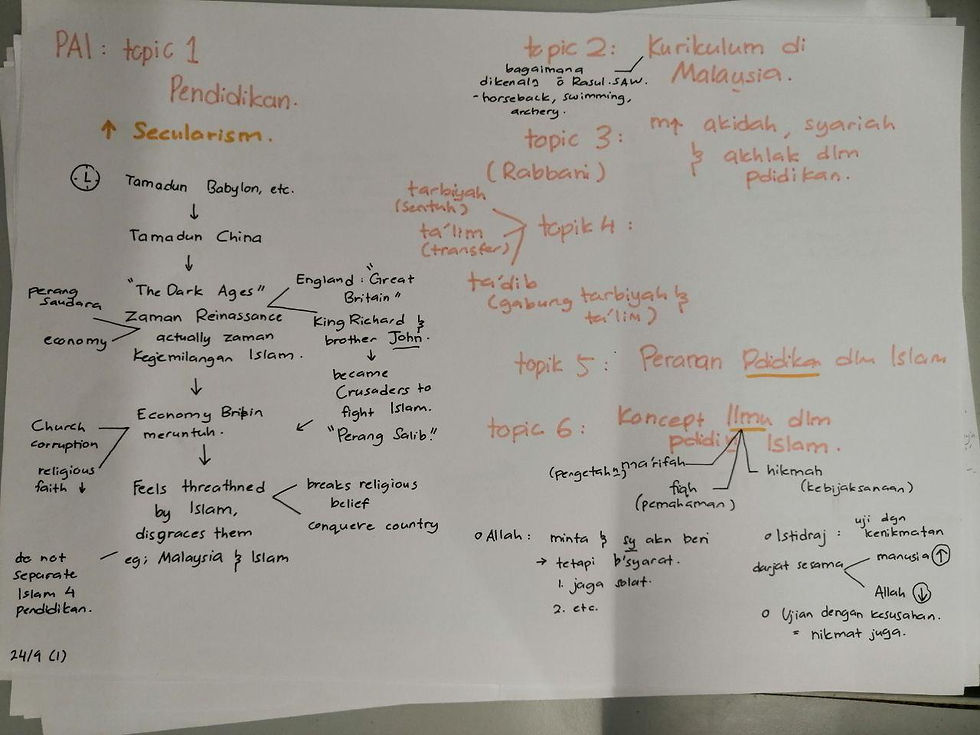 PAI : topic 1
Pendidikan.
↑ Secularism.
Tamadun Babylon, etc.
↓
Tamadun China
↓
"The Dark Ages"
Zaman Reinassance
actually zaman
Kegemilangan Islam.
perang
saudara
economy
England : "Great
Britain"
King Richard &
brother John.
↓
became
Crusaders to
fight Islam.
"Perang Salib."
↓
Economy Britain
meruntuh.
Church
corruption
religious
faith ↓
↓
Feels threathned
by Islam,
disgraces them
breaks religious
belief
conquere country
eg; Malaysia & Islam
do not
separate
Islam 4
pendidikan.
24/9 (1)
topic 2: Kurikulum di
Malaysia.
bagaimana
dikenal² ō Rasul.SAW.
- horseback, swimming,
archery.
topic 3: m↑ akidah, syariah
& akhlak dlm
pdidikan.
(Rabbani)
topik 4 :
tarbiyah
(sentuh)
ta'lim
(transfer)
ta'dib
(gabung tarbiyah &
ta'lim)
topik 5 : Peranan Pdidikan dlm Islam
topic 6 : Koncept Ilmu dlm
pdidi Islam.
ma'rifah
(pengetah²)
fiqh
(pemahaman)
hikmah
(kebijaksanaan)
o Allah : minta & sy akn beri
→ tetapi b'syarat.
1. jaga solat.
2. etc.
o Istidraj : uji dgn
kenikmatan
darjat sesama
manusia ↑
Allah ↓
o Ujian dengan kesusahan.
= nikmat juga.